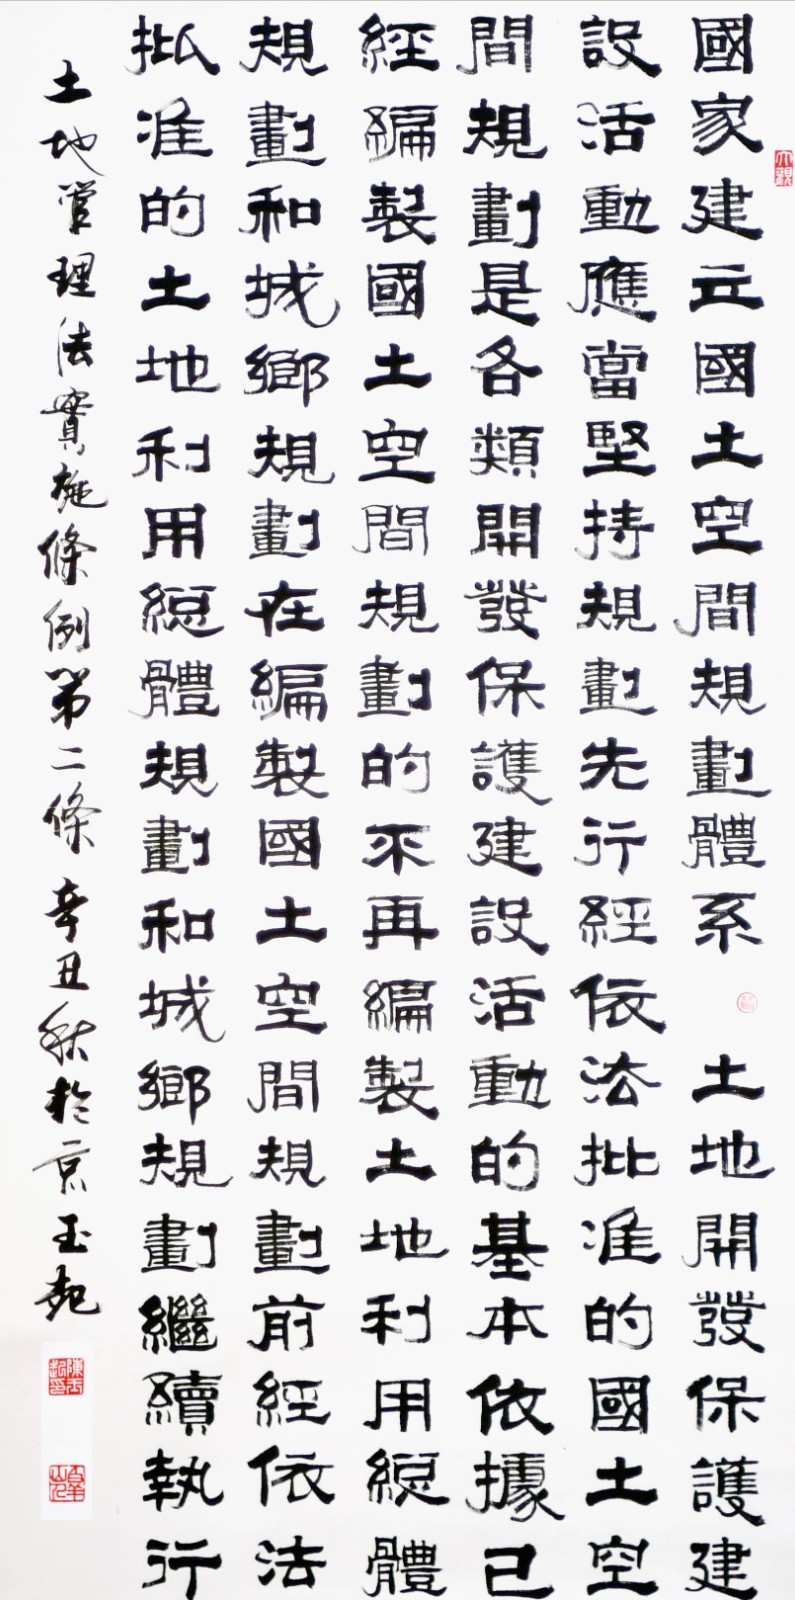 國家建立國土空間規劃體系 土地開發保護建
設活動應當堅持規劃先行經依法批准的國土空
間規劃是各類開發保護建設活動的基本依據已
經編製國土空間規劃的不再編製土地利用總體
規劃和城鄉規劃在編製國土空間規劃前經依法
批准的土地利用總體規劃和城鄉規劃繼續執行
土地管理法實施條例第二條 辛丑秋於京玉起
陳玉起印